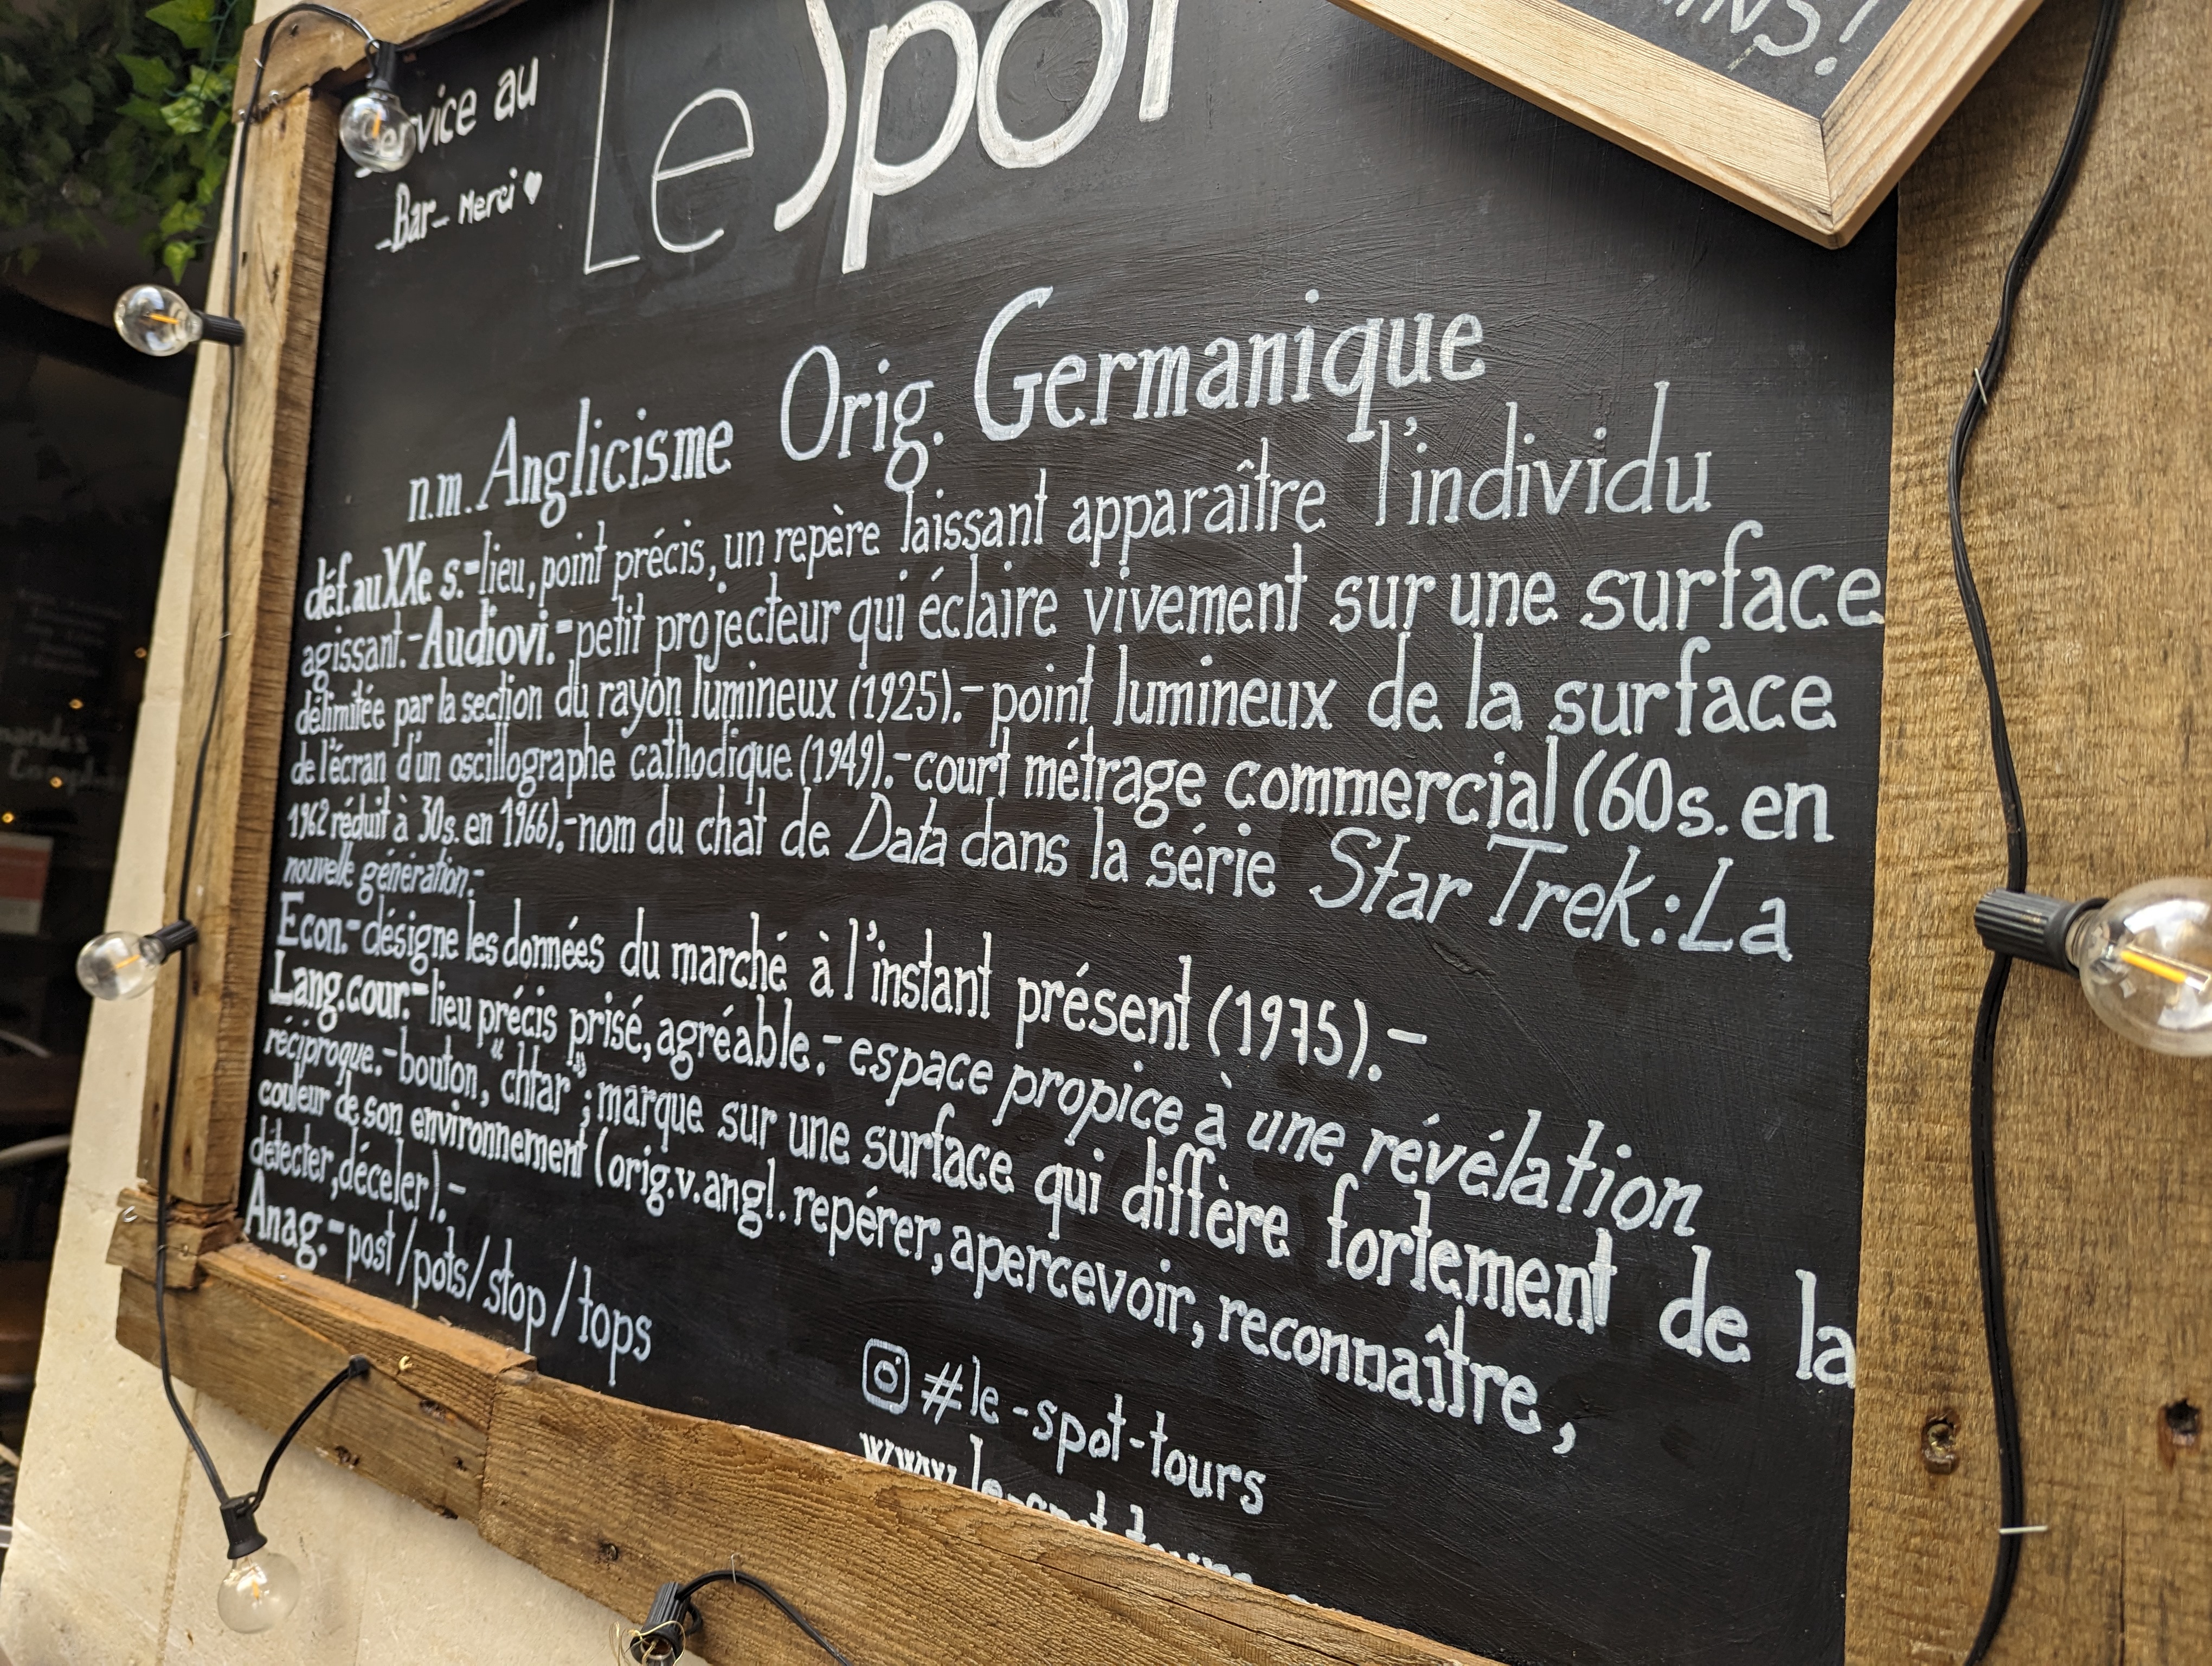 Service au
-Bar- Merci ♥
Le Spot
n.m. Anglicisme Orig. Germanique
déf. au XXe s.- lieu, point précis, un repère laissant apparaître l'individu
agissant.- Audiovi.- petit projecteur qui éclaire vivement sur une surface
délimitée par la section du rayon lumineux (1925).- point lumineux de la surface
de l'écran d'un oscillographe cathodique (1949).- court métrage commercial (60s. en
1962 réduit à 30s. en 1966).- nom du chat de Data dans la série Star Trek: La
nouvelle génération.-
Econ.- désigne les données du marché à l'instant présent (1975).-
Lang.cour.- lieu précis prisé, agréable.- espace propice à une révélation
réciproque.- bouton, "chtar"; marque sur une surface qui diffère fortement de la
couleur de son environnement (orig.v.angl. repérer, apercevoir, reconnaître,
détecter, déceler).-
Anag.- post/pots/stop/tops
#le-spot-tours
www.le-spot-tours